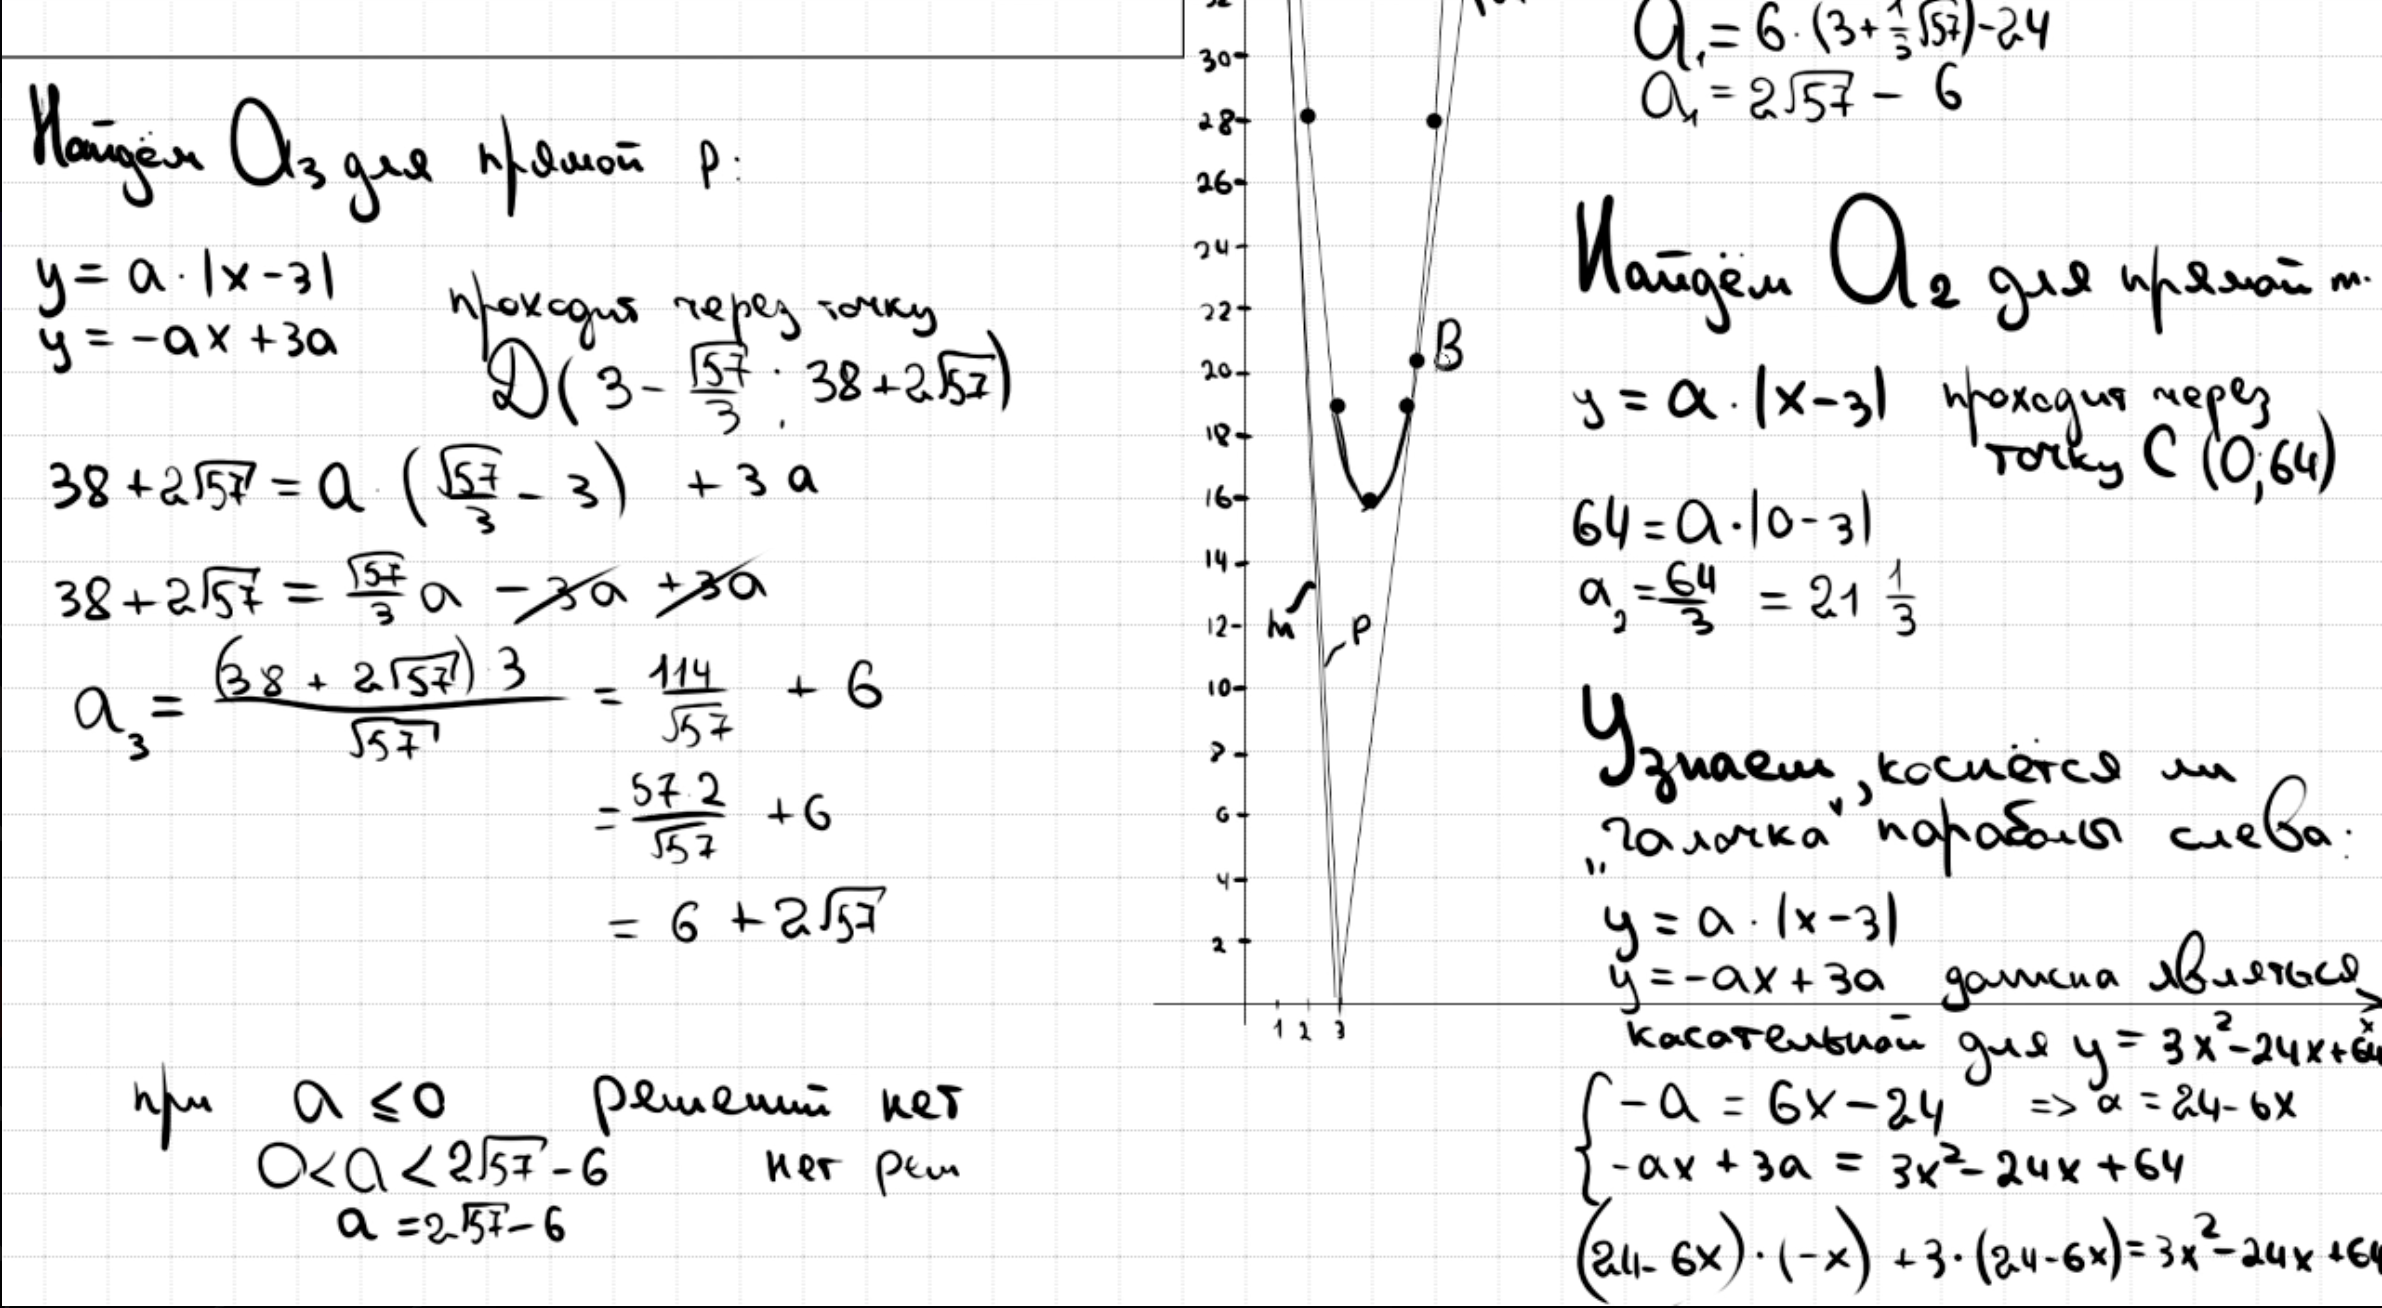 Найдём a₃ для прямой p:
y = a · |x-3|
y = -ax + 3a
проходит через точку
D(3 - √57/3 ; 38+2√57)
38+2√57 = a · (√57/3 - 3) + 3a
38+2√57 = √57/3 a - 3a + 3a
a₃ = (38 + 2√57)·3/√57 = 114/√57 + 6
= 57·2/√57 + 6
= 6 + 2√57
при a ≤ 0 решений нет
0 < a < 2√57 - 6 нет реш
a = 2√57 - 6
30
28
26
24
22
20
18
16
14
12
10
8
6
4
2
1 2 3
B
m
p
x
a₁ = 6·(3+1/3√57)-24
a₁ = 2√57 - 6
Найдём a₂ для прямой m.
y = a · |x-3| проходит через
точку C (0;64)
64 = a·|0-3|
a₂ = 64/3 = 21 1/3
Узнаем, коснётся ли
„галочка" параболы слева:
y = a · |x-3|
y = -ax + 3a должна являться
касательной для y = 3x²-24x+64
{ -a = 6x-24 => a = 24-6x
-ax + 3a = 3x²-24x+64
(24-6x)·(-x) + 3·(24-6x) = 3x²-24x+64